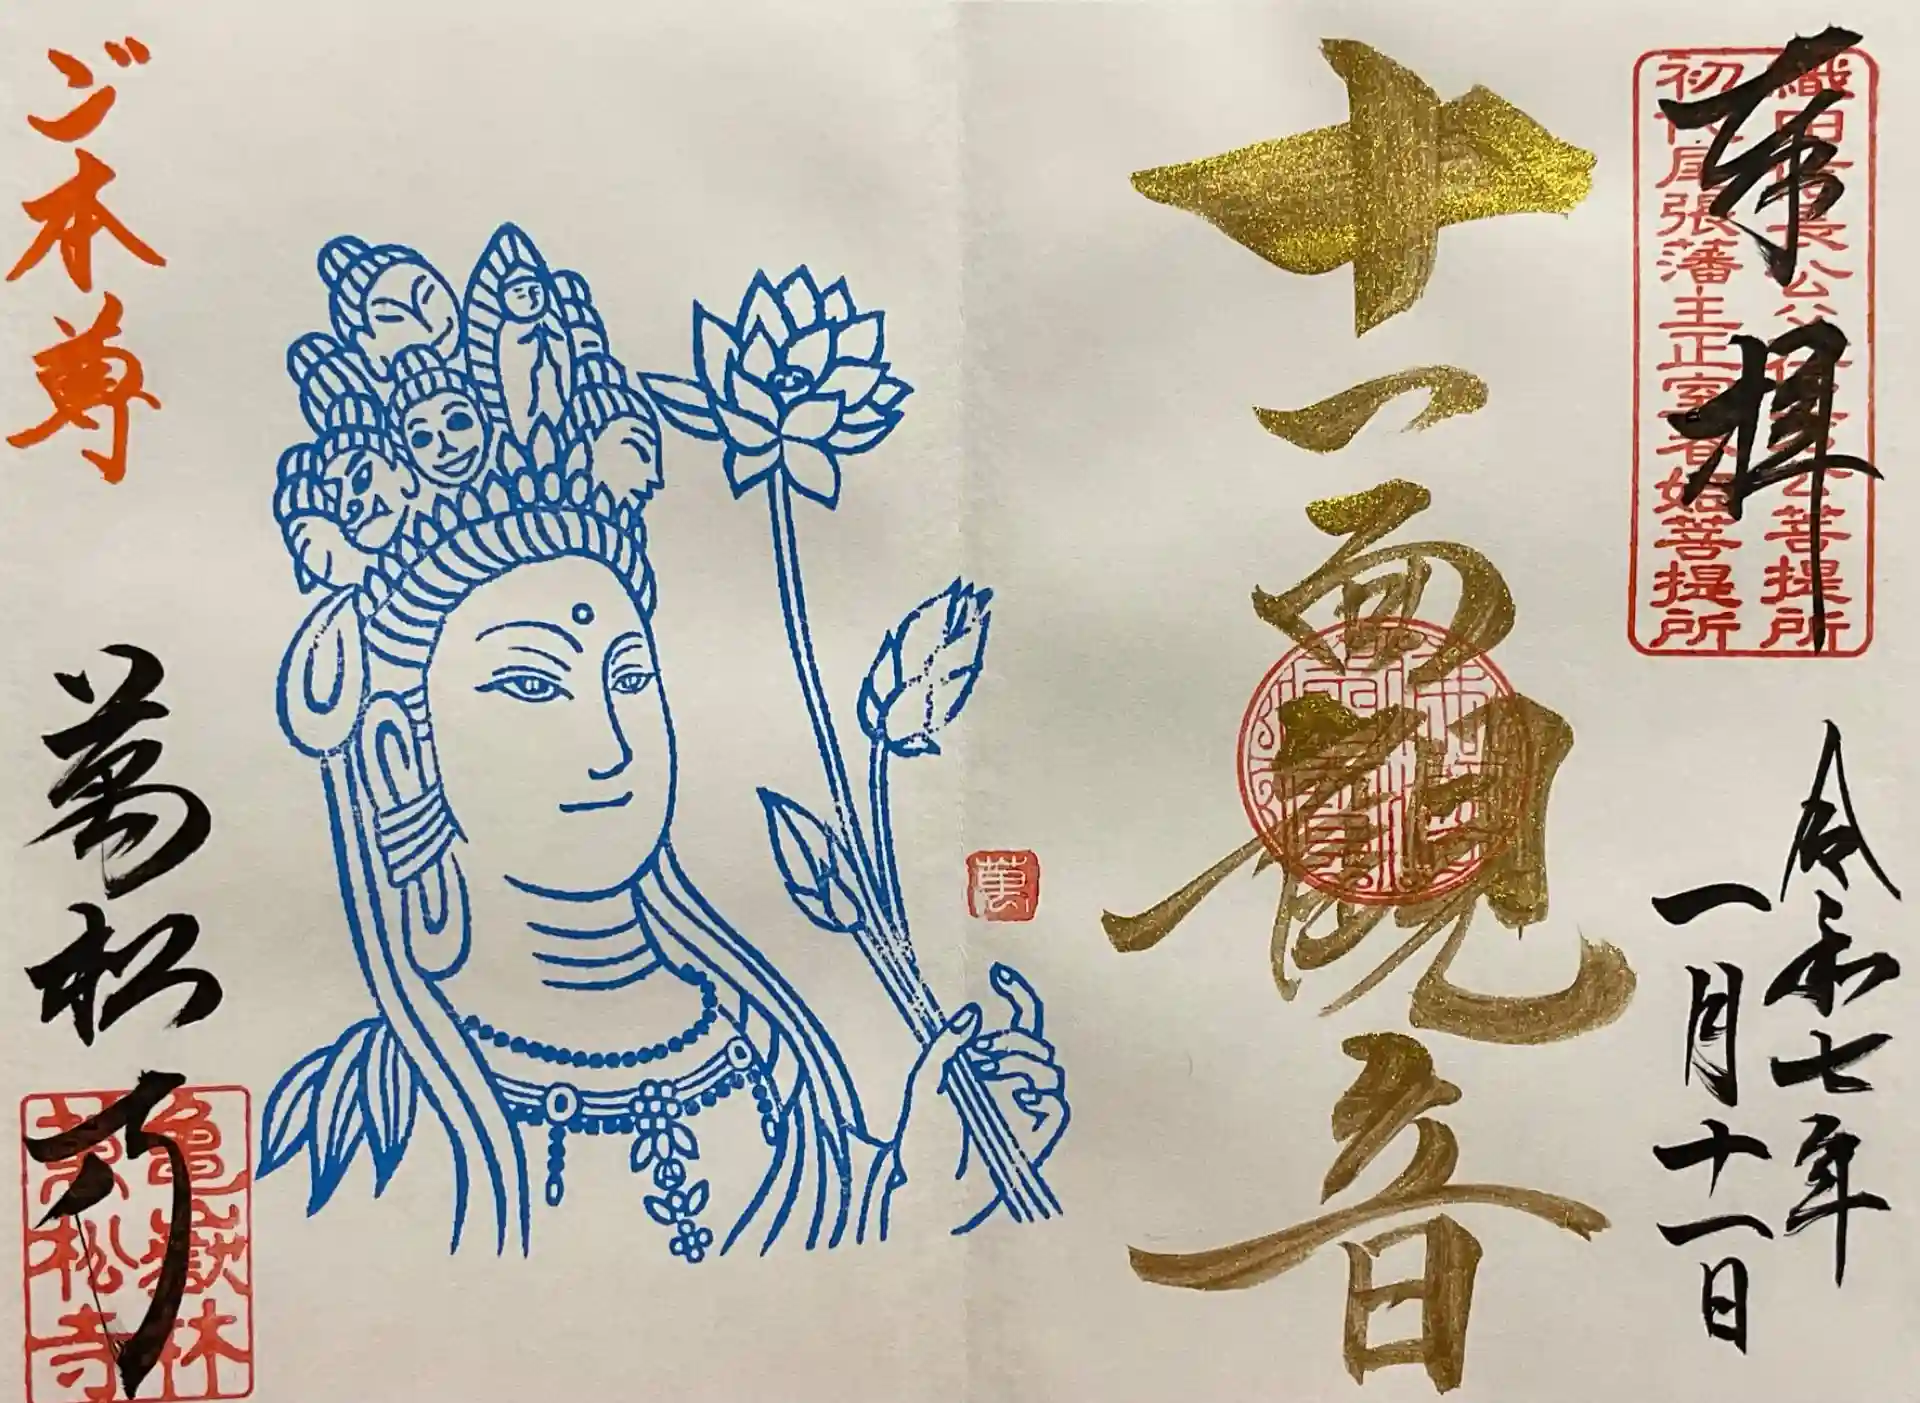 奉拝
織田信長公父信秀公菩提所
初代尾張藩主正室春姫菩提所
令和七年
一月十一日
十一面観音
萬
ご本尊
萬松寺
亀嶽林
萬松寺